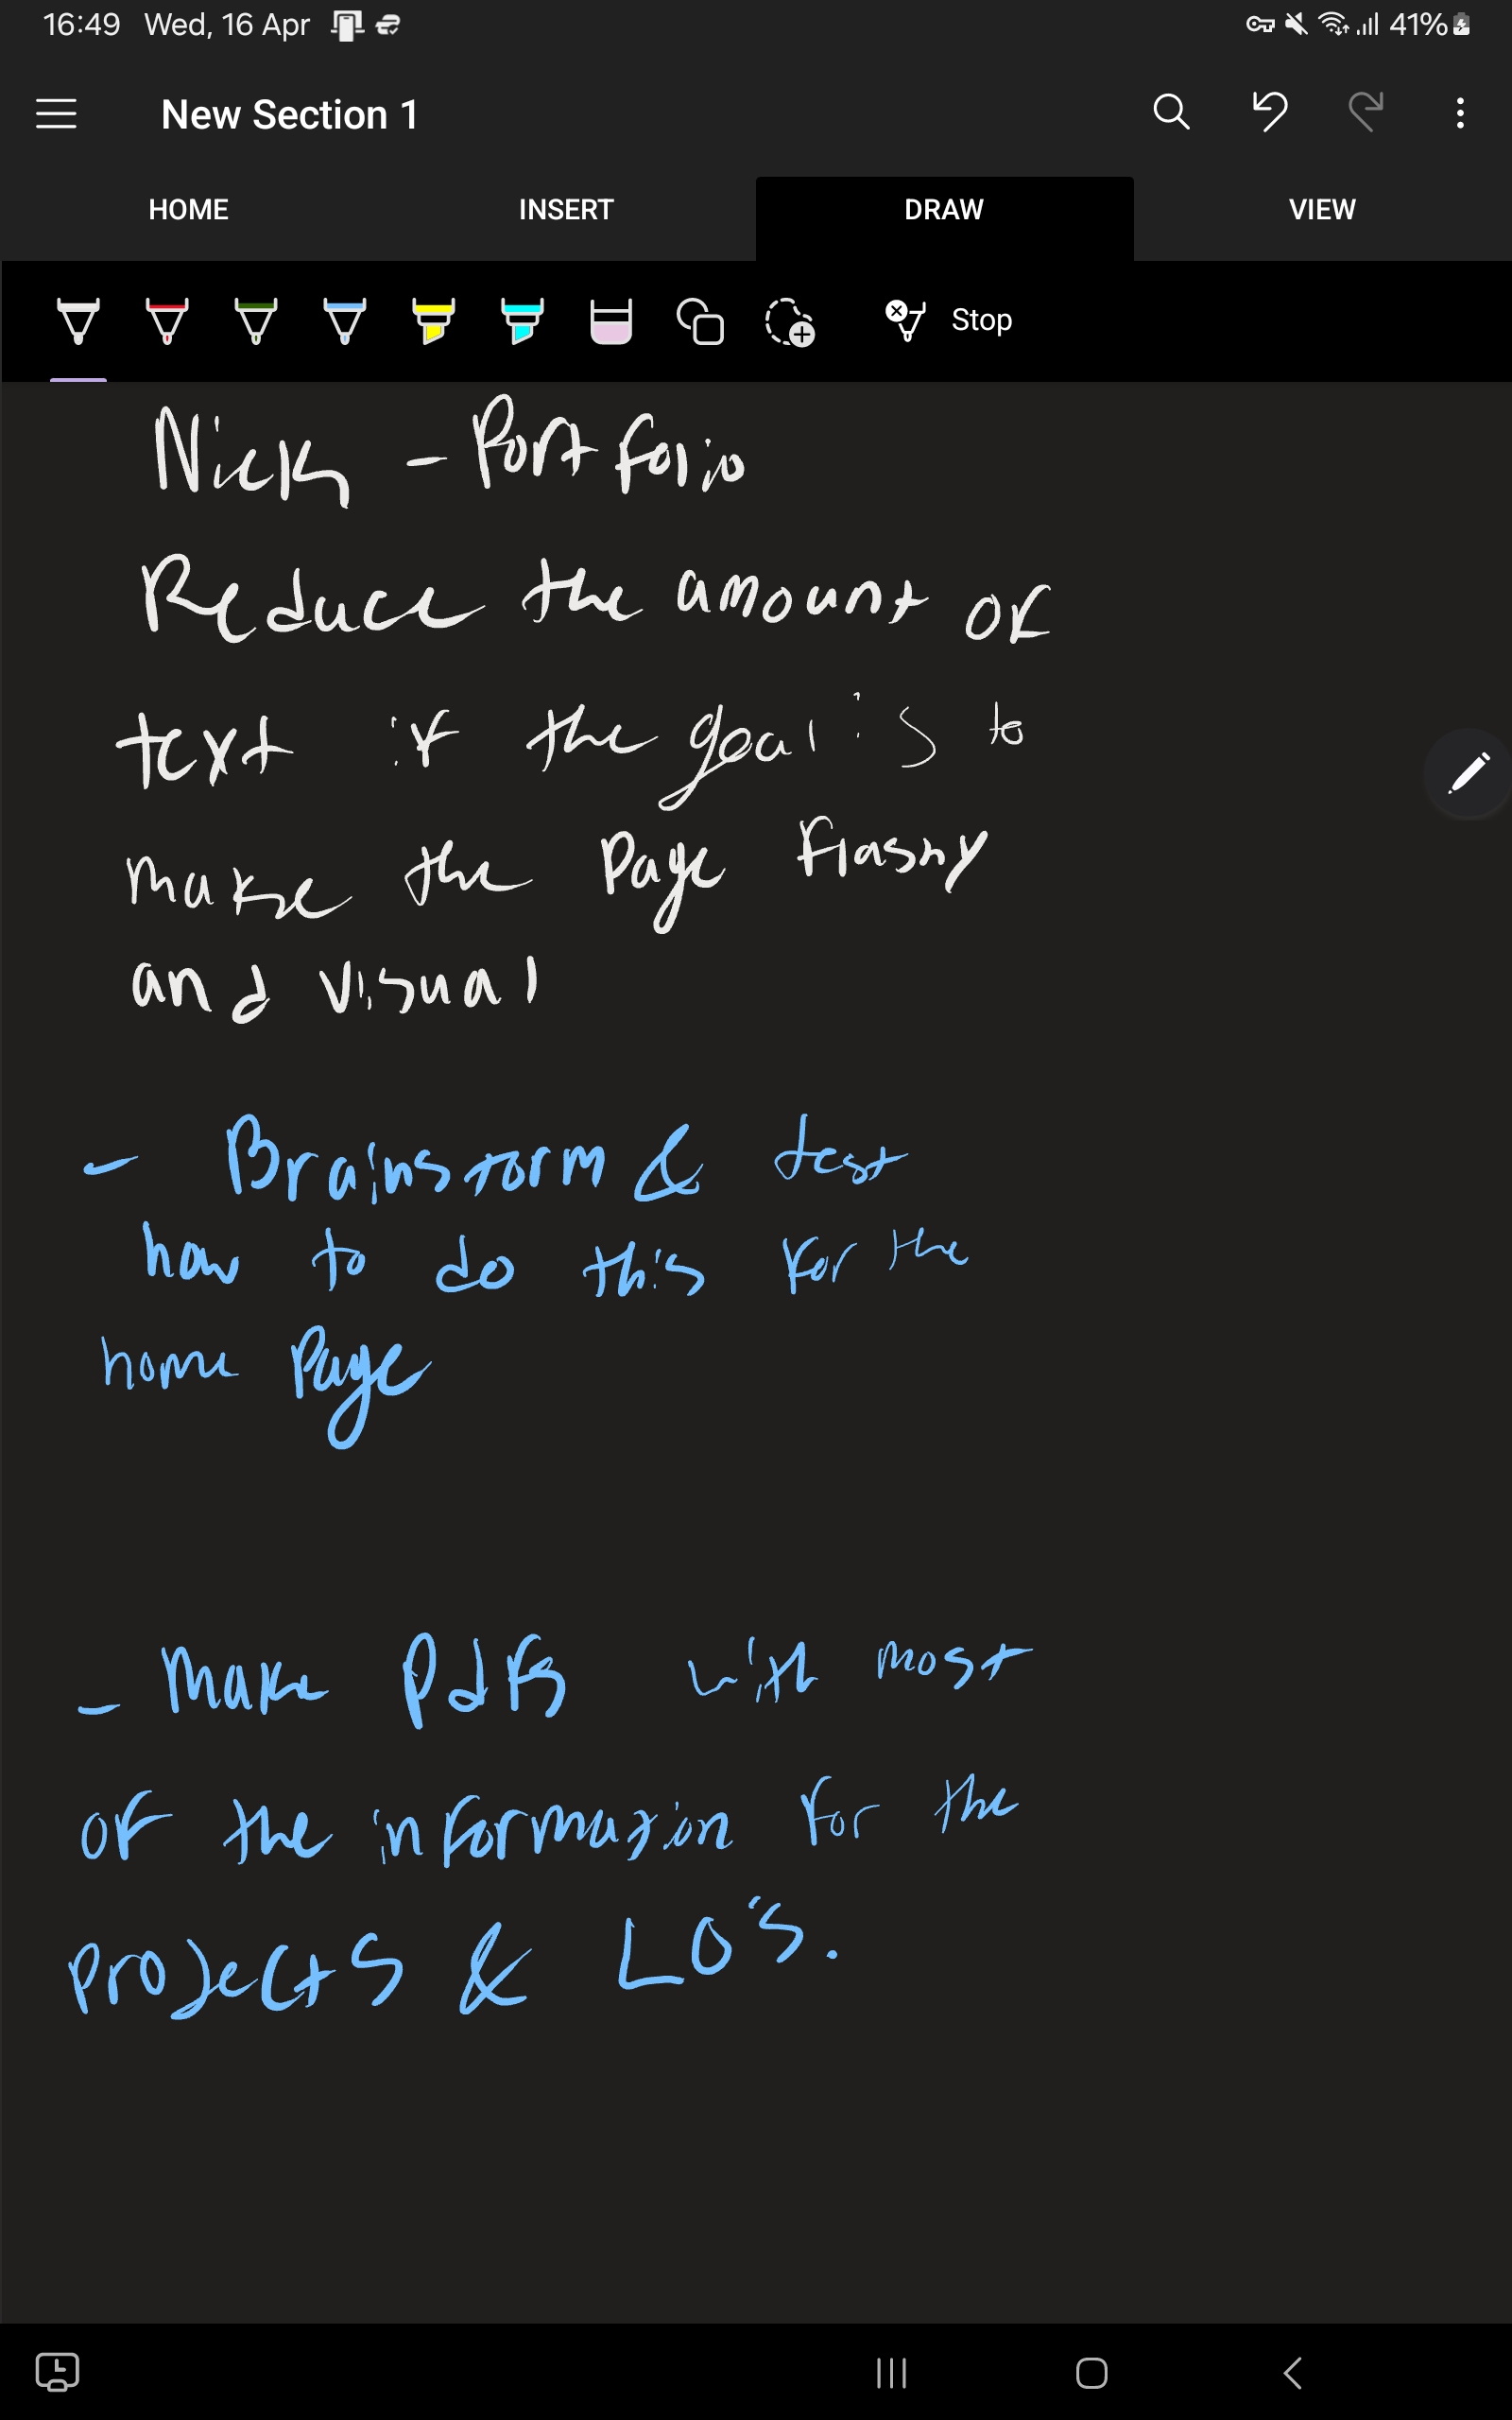 16:49 Wed, 16 Apr 41%
New Section 1
HOME INSERT DRAW VIEW
Stop
Nick - Portfolio
Reduce the amount of
text if the goal is to
make the Page flashy
and visual
- Brainstorm & test
how to do this for the
home Page
- Make Pdfs with most
of the information for the
Projects & LO's.